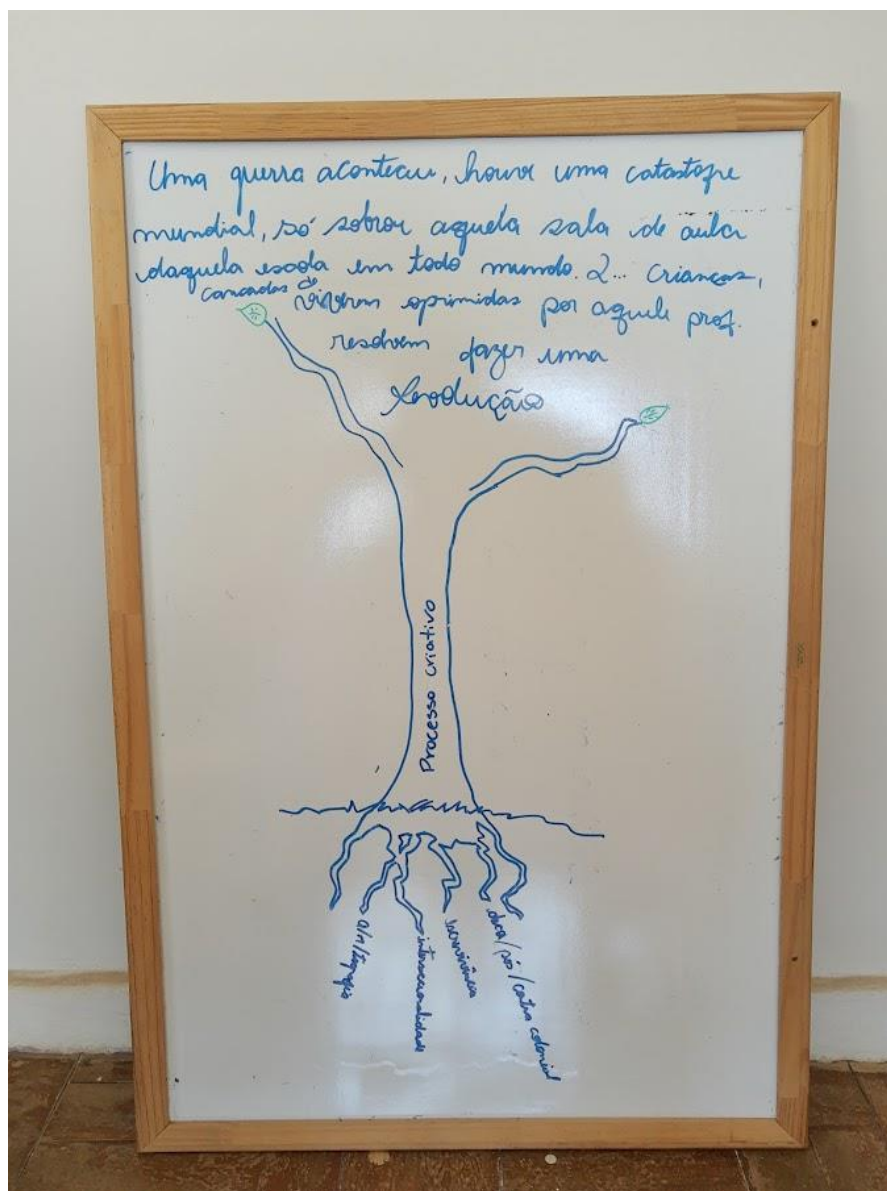 Uma guerra aconteceu, houve uma catastofre
mundial, só sobrou aquela sala de aula
daquela escola em todo mundo. 2... crianças,
cansadas de viverem oprimidas por aquele prof.
resolvem fazer uma
Revolução
Processo criativo
interseccionalidade
escrevivência
/pós/contra colonial